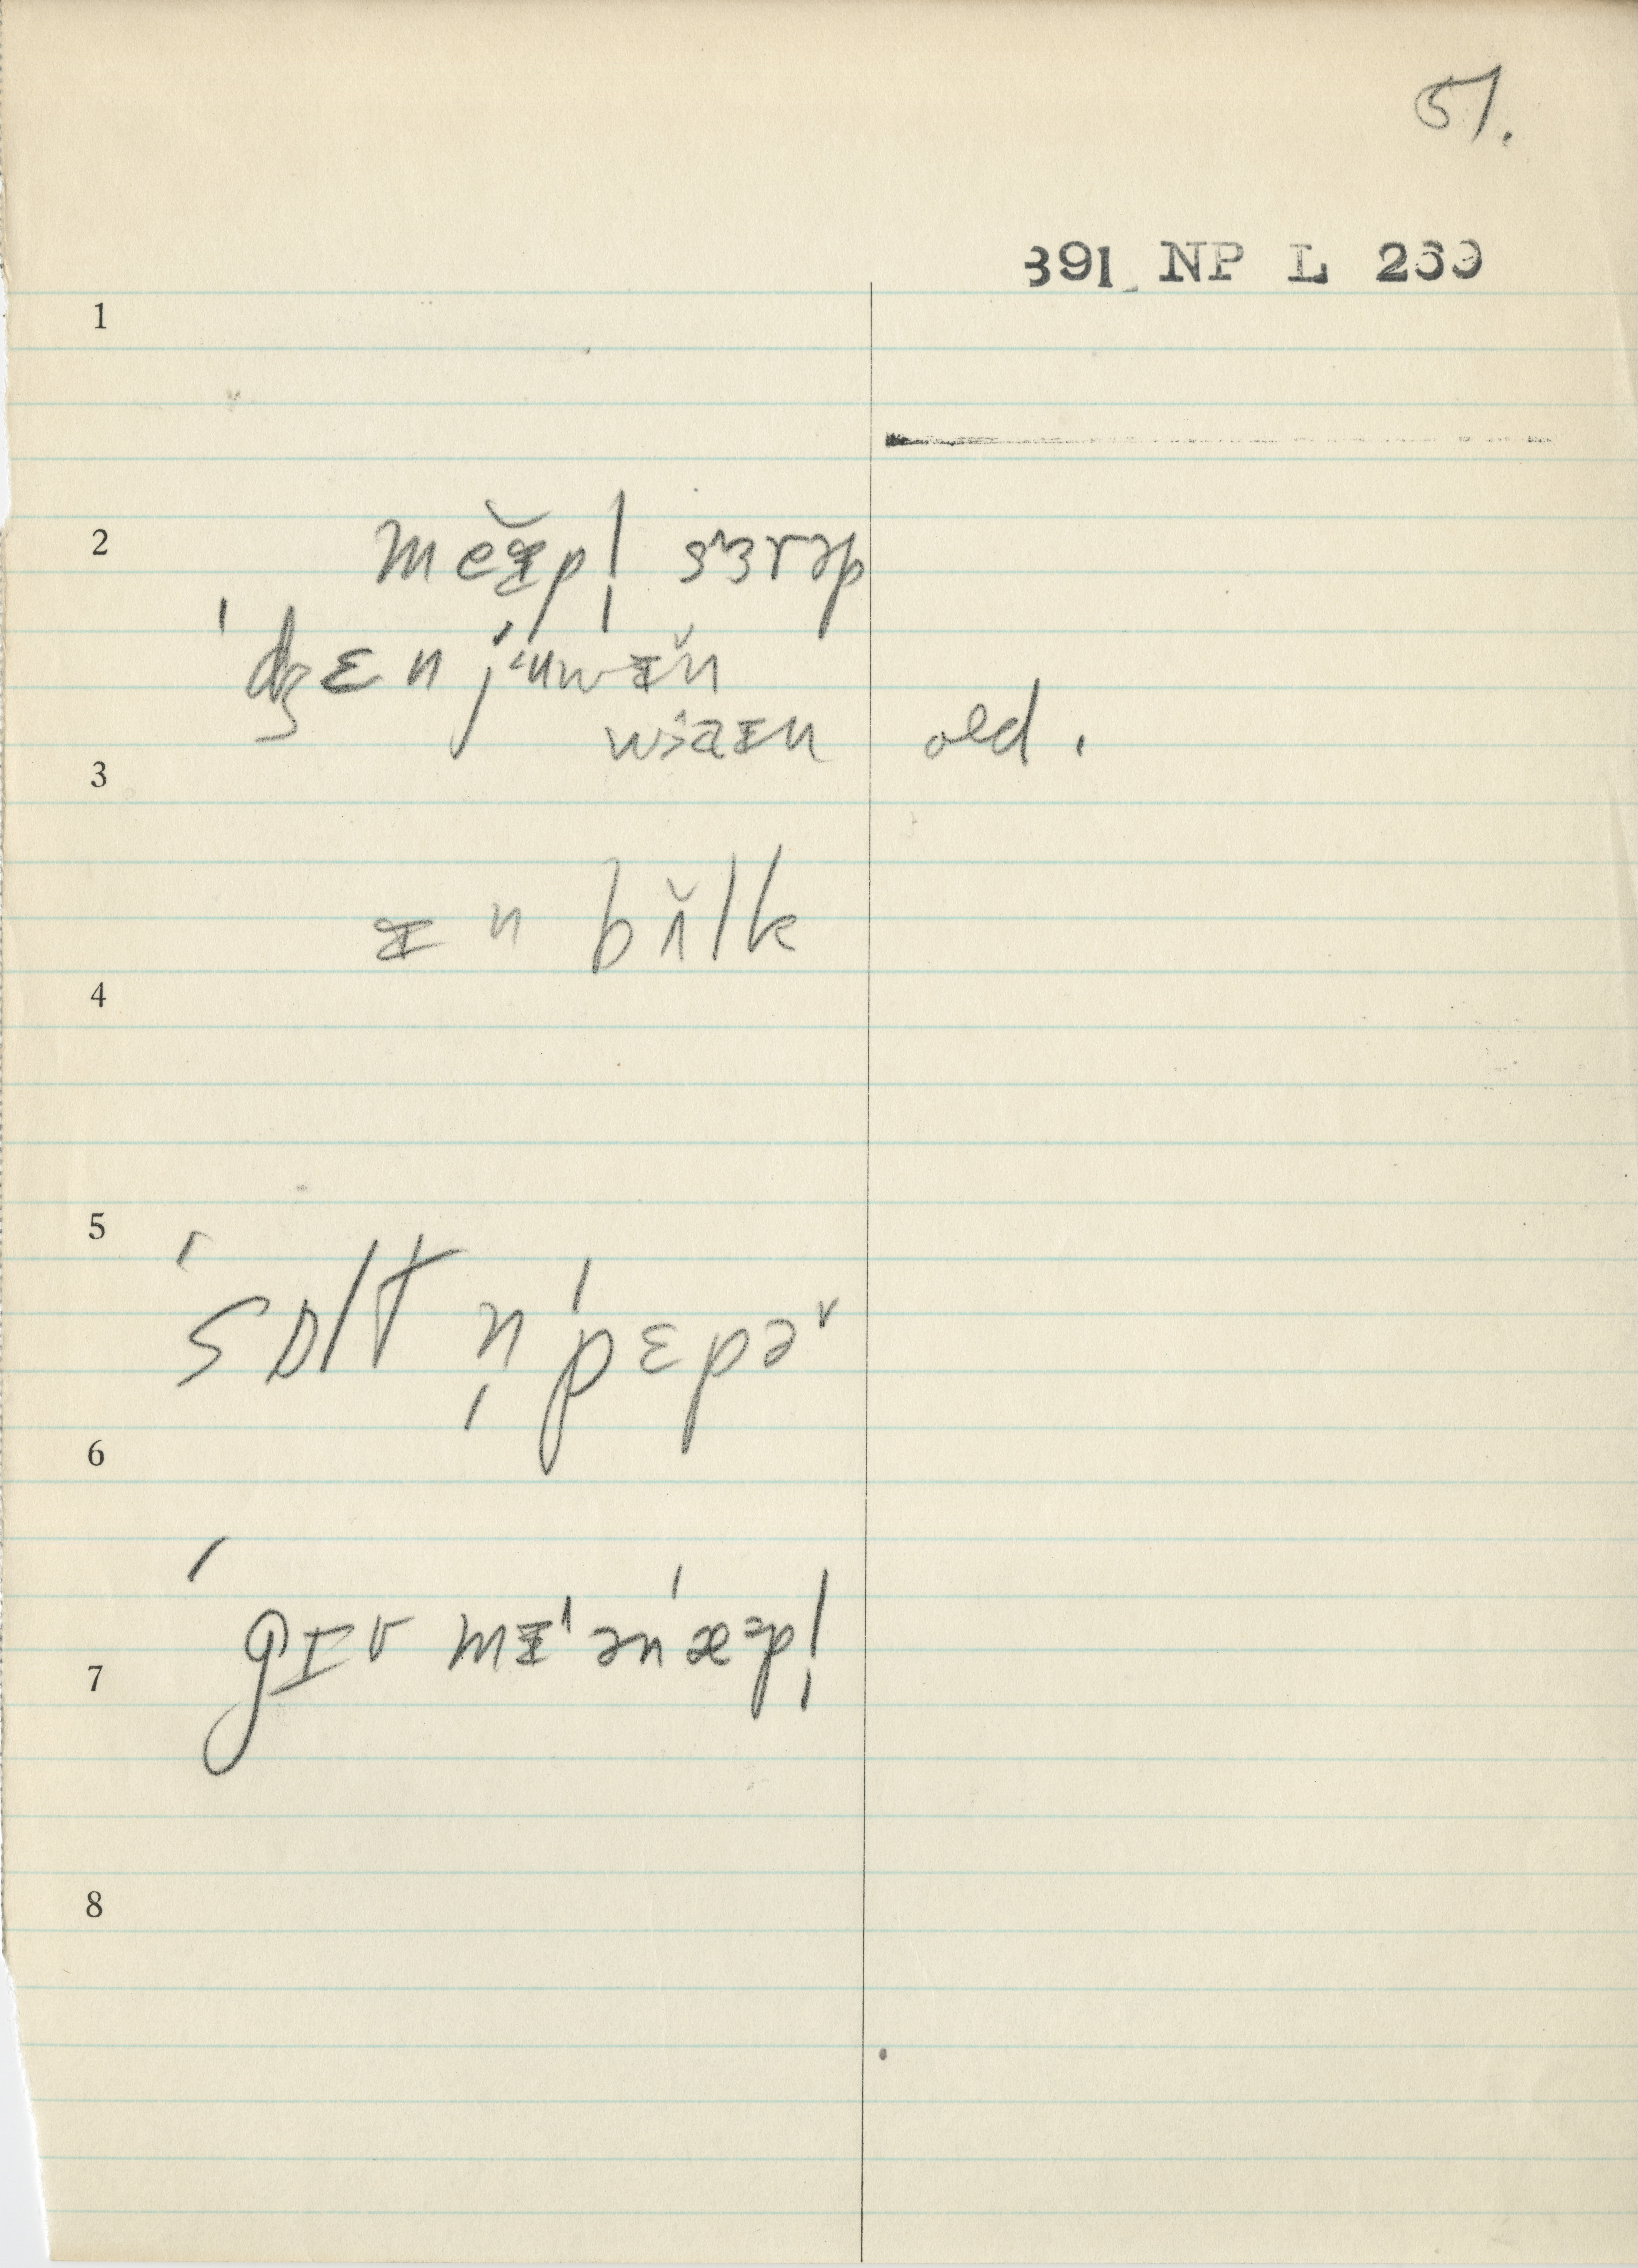 51.
391 NP L 269
1
2
meᵻ̆pl̩ sɜrəp
ˈdʒɛn juwᵻ̆n
waᵻn old.
3
ᵻn bʌ̆lk
4
5
ˈsɒlt n̩ ˈpɛpəʳ
6
ˈgɪv mᵻ ən ˈæəpl̩
7
8